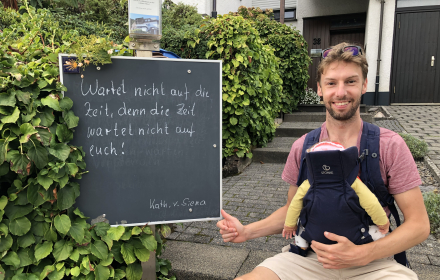 Wartet nicht auf die
Zeit, denn die Zeit
wartet nicht auf
euch!
Kath. v. Siena